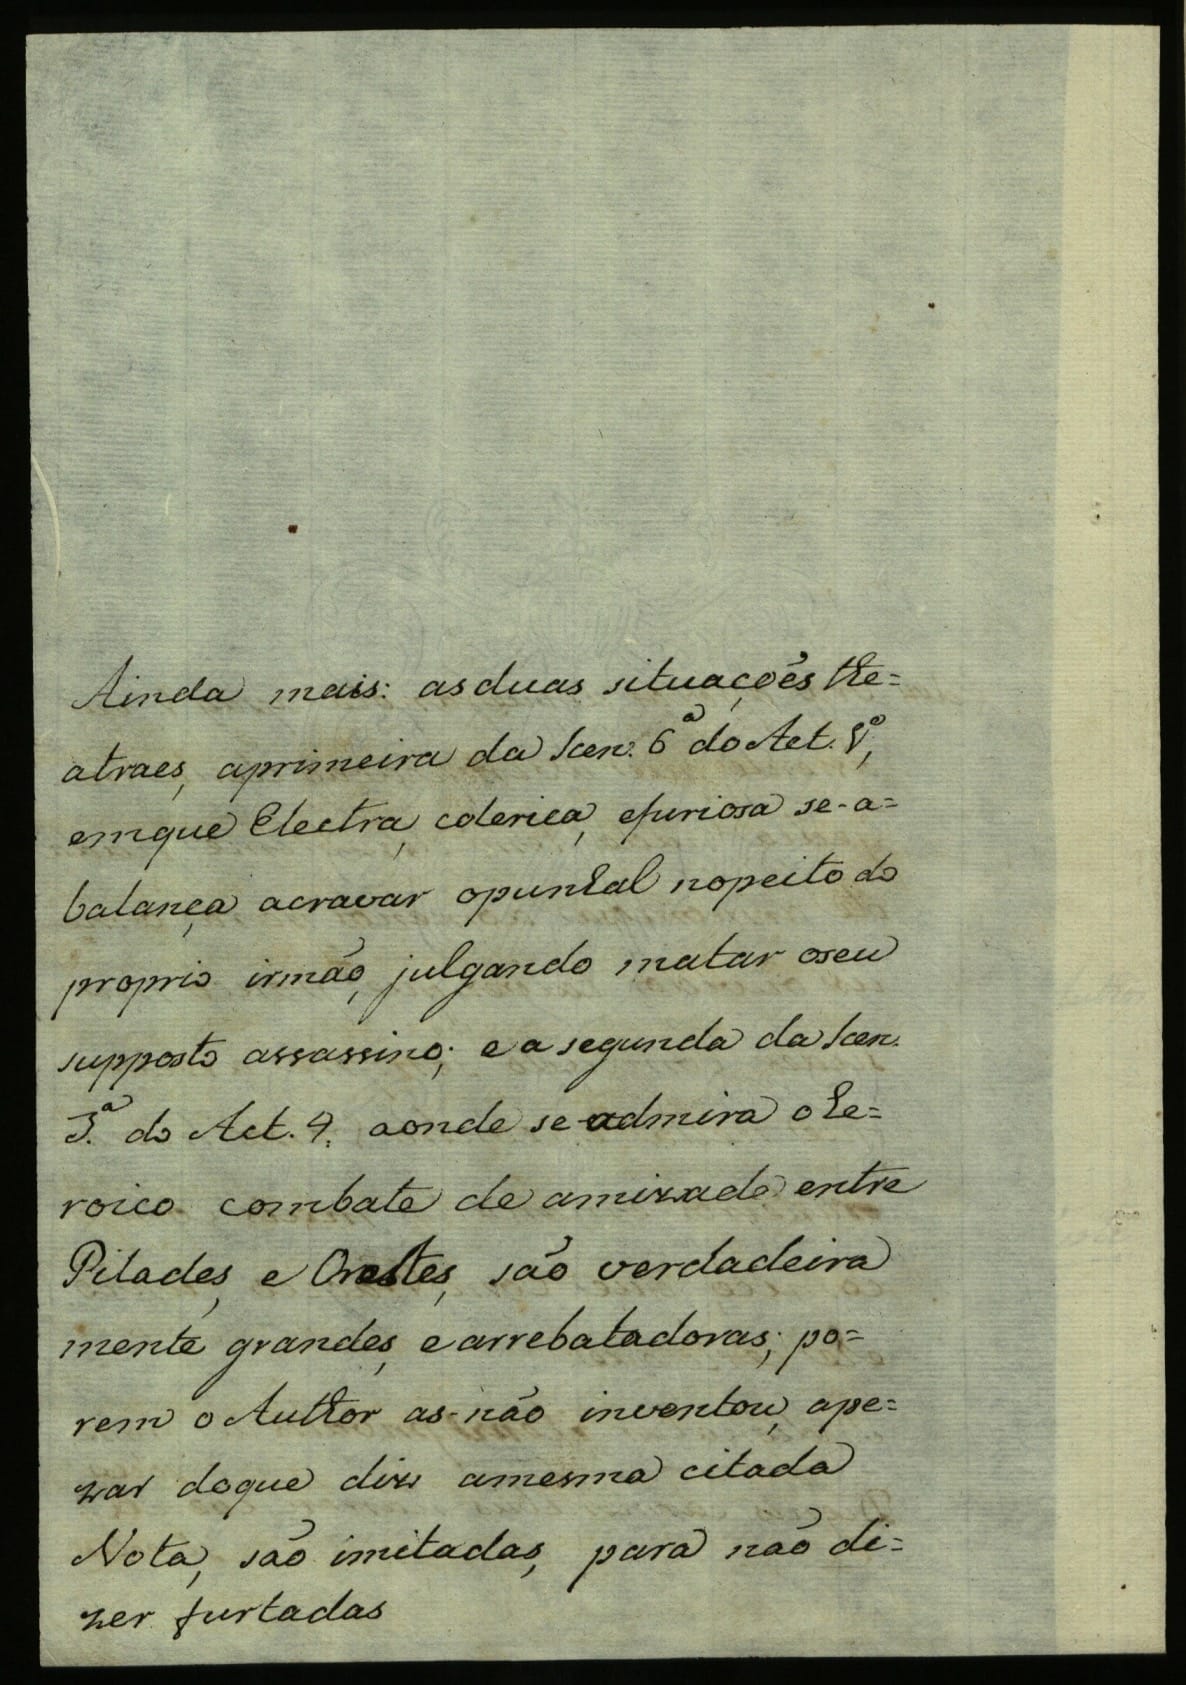 Ainda mais: as duas situações the=
atraes, aprimeira da Scen. 6ª do Act. 1º,
emque Electra, colerica, efuriosa se-a=
balança acravar opunhal nopeito do
proprio irmão, julgando matar oseu
supposto assassino; e a segunda da Scen.
3.ª do Act. 4. aonde se-admira o he=
roico combate de amizade entre
Pilades, e Orestes, são verdadeira
mente grandes, e arrebatadoras; po=
rem o Author as-não inventou, ape=
zar doque diz amesma citada
Nota, são imitadas, para não di=
zer furtadas